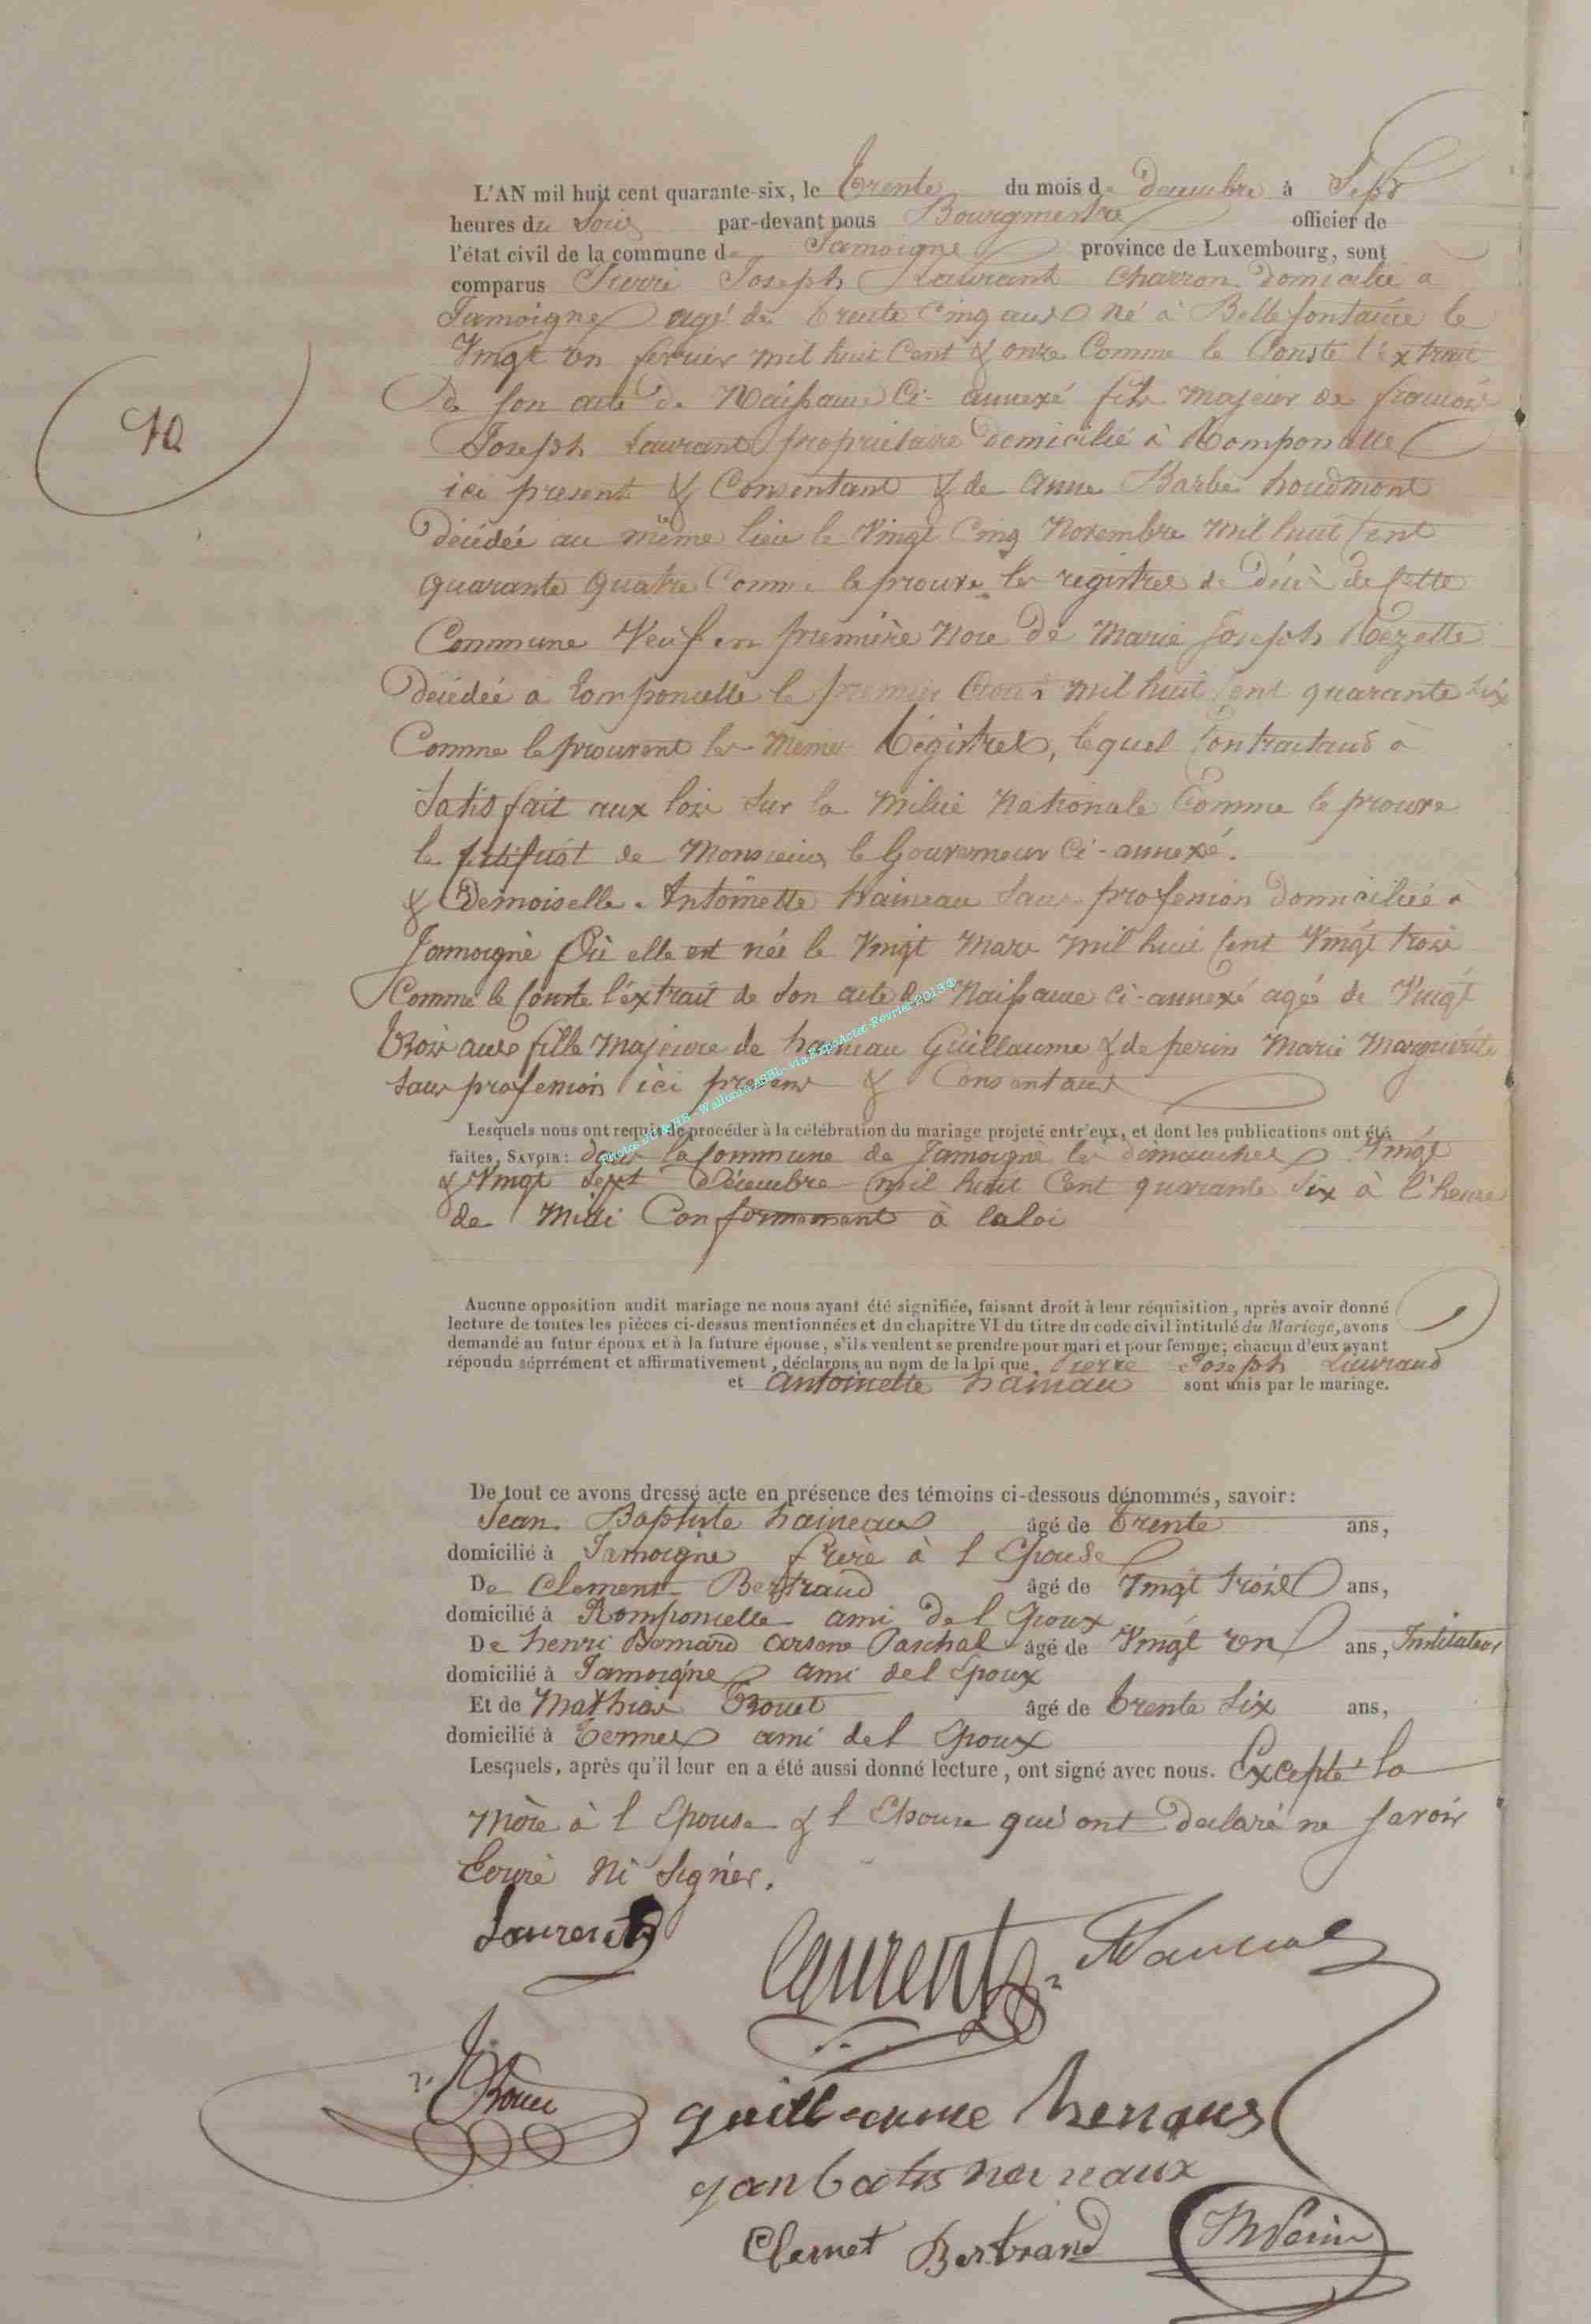 L'AN mil huit cent quarante-six, le Trente du mois de Decembre à Sept
heures du Soir par-devant nous Bourgmestre officier de
l'état civil de la commune de Jamoigne province de Luxembourg, sont
comparus Pierre Joseph Laurant Charron Domicilié à
Jamoigne agé de trente Cinq ans Né à Bellefontaine le
Vingt un fevrier mil huit Cent & onze Comme le Conste l'extrait
de son acte de Naissance Ci-annexé fils majeur de francois
Joseph Laurant propriétaire domicilié à Romponcelle
ici present & Consentant & de Anne Barbe houdmont
décédée au même lieu le Vingt Cinq Novembre mil huit Cent
quarante quatre Comme le prouve les registres de décès de Cette
Commune Veuf en première Noce de Marie Joseph Rozette
Décédée a Romponcelle le premier Aout mil huit Cent quarante Six
Comme le prouvent les Memes Régistres, lequel Contractant à
Satisfait aux lois Sur la Milice Nationale Comme le prouve
le Certificat de Monsieur le Gouverneur Ci-annexé.
& Demoiselle Antoinette haineau Sans profession Domiciliée à
Jamoigne Où elle est née le Vingt Mars mil huit Cent Vingt trois
Comme le Conste l'extrait de Son acte de Naissance Ci-annexé agée de Vingt
Trois ans fille Majeure de haineau Guillaume & de perin Marie Marguerite
Sans profession ici présens & Consentant
Photos UGHHB - Wallonia ASBL - via ExpoActes - Février 2013 ©
Lesquels nous ont requis de procéder à la célébration du mariage projeté entr'eux, et dont les publications ont été
faites, SAVOIR: dans la Commune de Jamoigne les dimanches Vingt
& Vingt Sept Décembre mil huit Cent quarante Six à l'heure
de Midi Conformement à la loi
10
Aucune opposition audit mariage ne nous ayant été signifiée, faisant droit à leur réquisition, après avoir donné
lecture de toutes les pièces ci-dessus mentionnées et du chapitre VI du titre du code civil intitulé du Mariage, avons
demandé au futur époux et à la future épouse, s'ils veulent se prendre pour mari et pour femme; chacun d'eux ayant
répondu séprrément et affirmativement, déclarons au nom de la loi que Pierre Joseph Laurand
et Antoinette hainau sont unis par le mariage.
De tout ce avons dressé acte en présence des témoins ci-dessous dénommés, savoir:
Jean Baptiste haineaux âgé de Trente ans,
domicilié à Jamoigne frère à l Epouse
De Clement Bertrand âgé de Vingt trois ans,
domicilié à Romponcelle ami de l Epoux
De henri Bernard Arsene Paschal âgé de Vingt un ans, Instituteur
domicilié à Jamoigne ami del Epoux
Et de Mathias Bouet âgé de trente Six ans,
domicilié à Termes ami del Epoux
Lesquels, après qu'il leur en a été aussi donné lecture, ont signé avec nous. Excepté la
Mère à l Epouse & l Epouse qui ont declaré ne Savoir
Ecrire Ni Signer.
Laurent
Laurent
guilleaume henaus
Clemet Bertrand